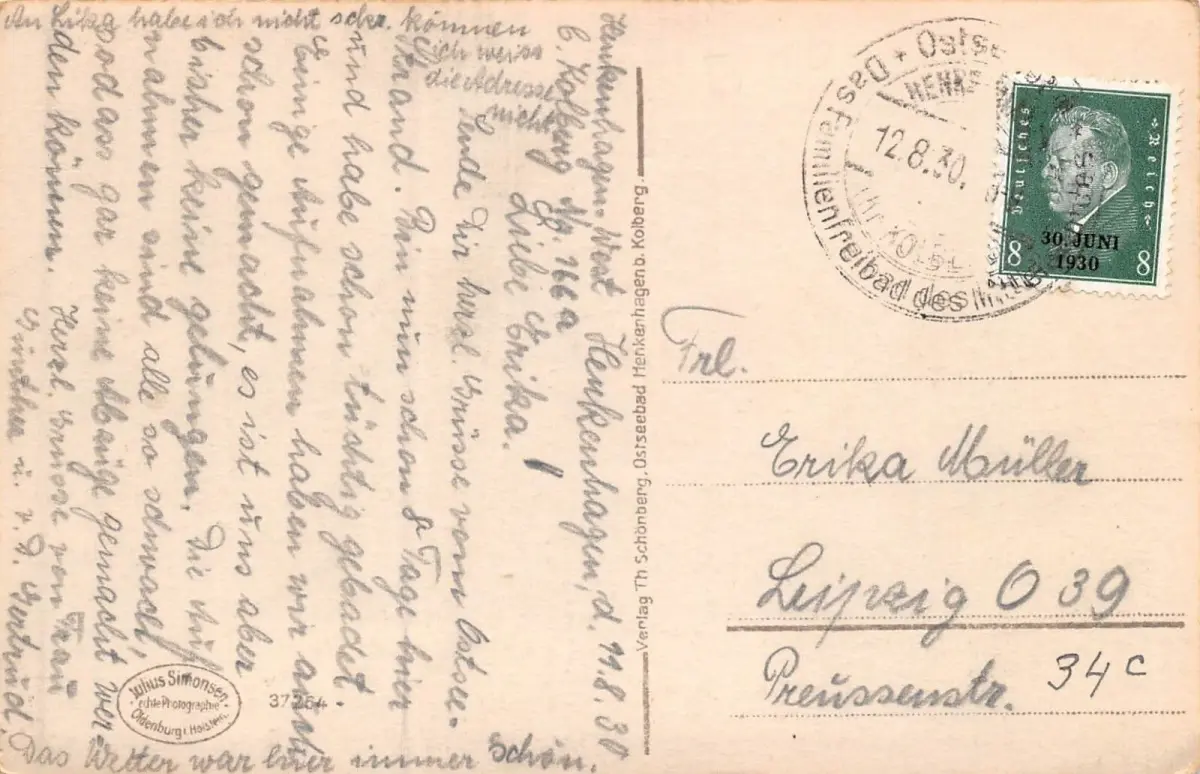 An Lika habe ich nicht schr. können
ich weiss
die Adresse
nicht
Henkenhagen-West
b. Kolberg Nr. 166a
Henkenhagen, d. 11.8.30
Liebe Erika.
Sende Dir herzl. Grüsse vom Ostsee-
Strand. Bin nun schon 8 Tage hier
und habe schon tüchtig gebadet
Einige Aufnahmen haben wir auch
schon gemacht, es ist uns aber
bisher keine gelungen. Die Auf
nahmen sind alle so schwach,
sodass gar keine Abzüge gemacht wer-
den können.
Herzl. Grüsse von Frau
Günther u. v. D. Gertrud.
Das Wetter war hier immer schön.
Verlag Th Schönberg, Ostseebad Henkenhagen b. Kolberg
Julius Simonsen
echte Photographie
Oldenburg i. Holstein.
37264
Das Familienfreibad des
* Ostse
HENKE
12.8.30.
KOLB
Deutsches Reich
30. JUNI
1930
8 8
Frl.
Erika Müller
Leipzig O 39
Preussenstr. 34 c